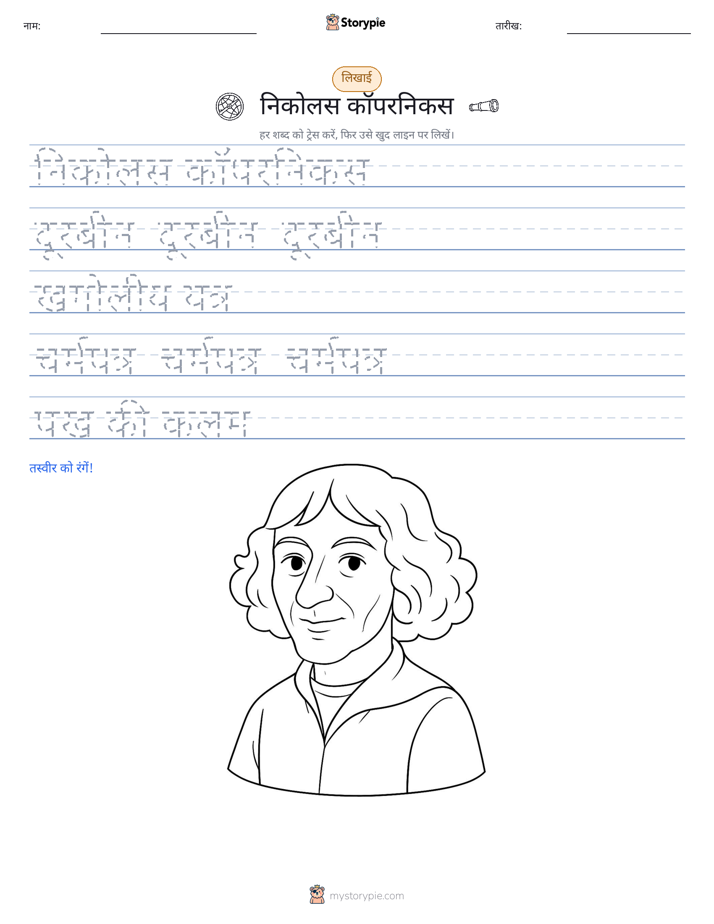 नाम:
Storypie
तारीख:
लिखाई
निकोलस कॉपरनिकस
हर शब्द को ट्रेस करें, फिर उसे खुद लाइन पर लिखें।
निकोलस कॉपरनिकस
दूरबीन दूरबीन दूरबीन
खगोलीय यत्र
चर्मपत्र चर्मपत्र चर्मपत्र
पख की कलम
तस्वीर को रंगें!
mystorypie.com